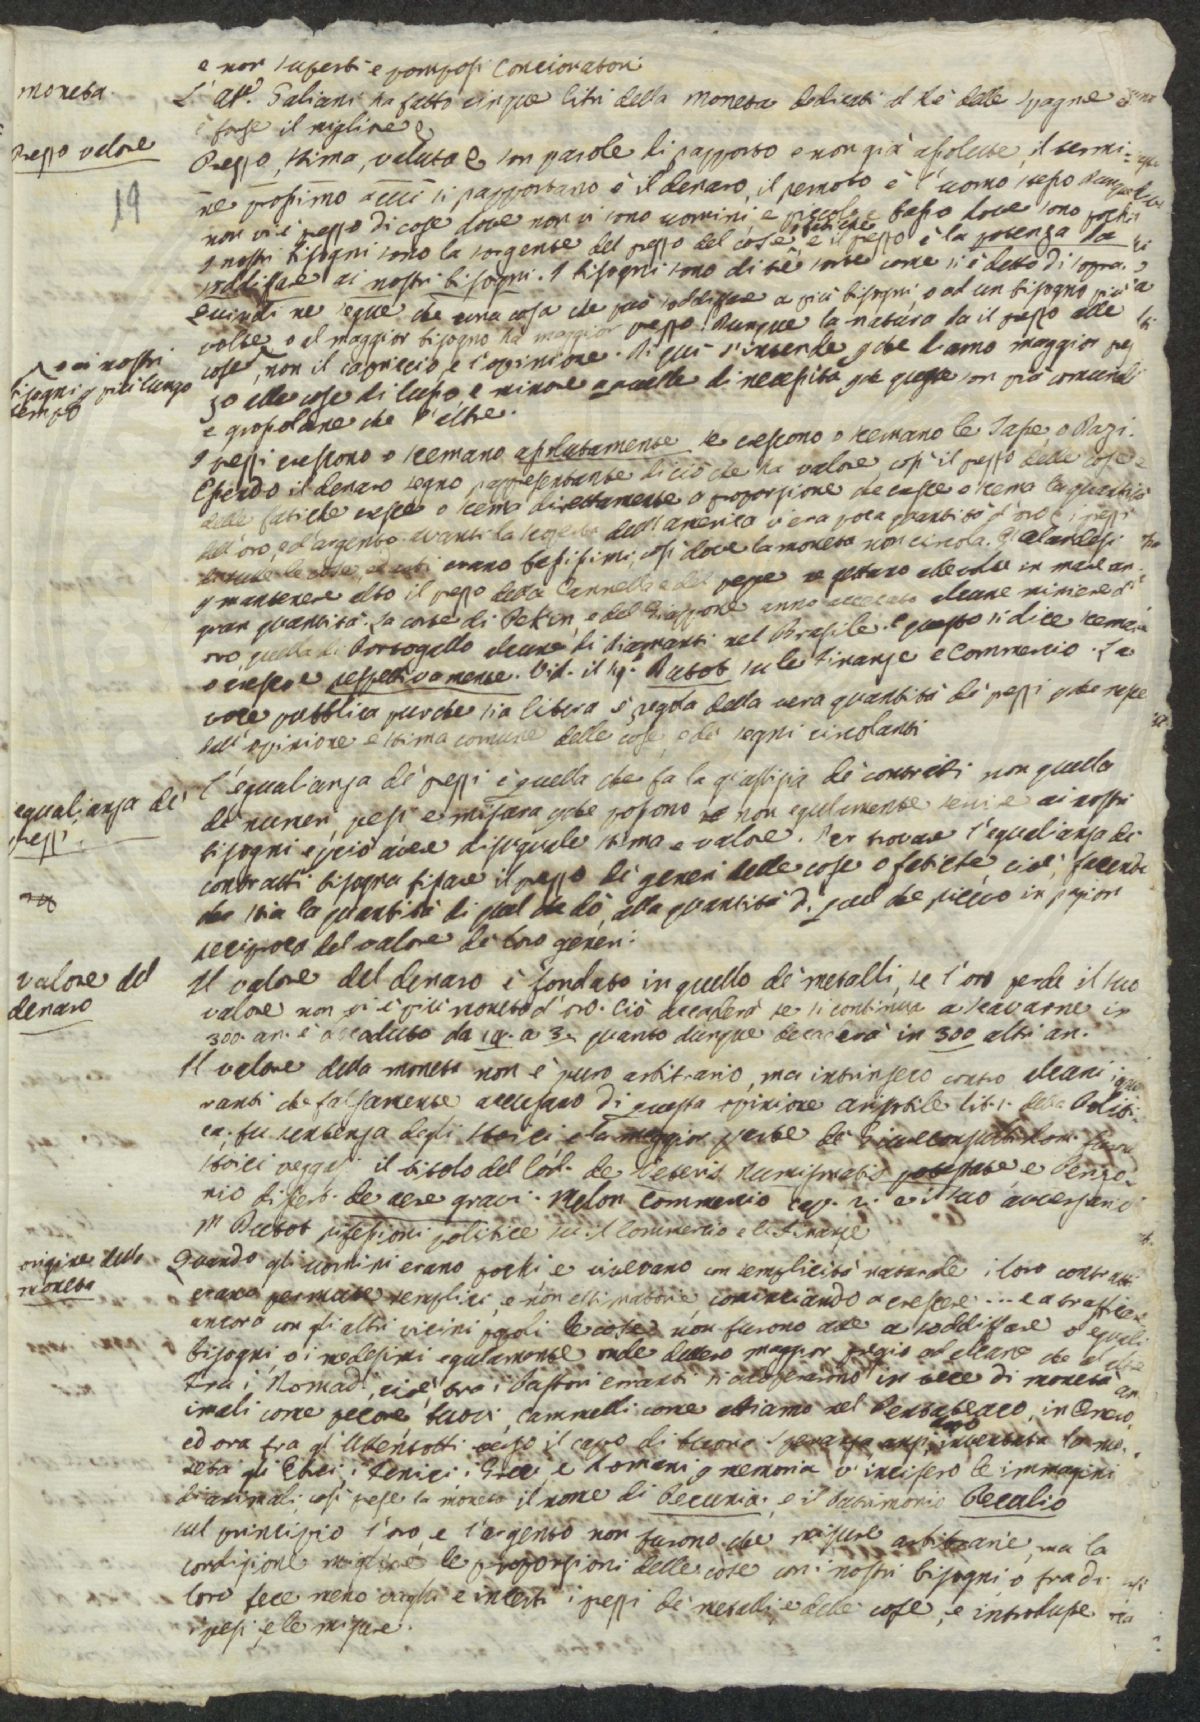 e non superbi e pomposi Concionatori
moneta.
L'Ab. Galiani ha fatto cinque libri della Moneta dedicati al Rè delle Spagne
è forse il migliore
Prezzo valore
Prezzo, stima, valuta son parole di rapporto e non già assolute, il termi=
19
ne prossimo a cui si rapportano è il denaro, il remoto è l'uomo stesso dunque
non vi è prezzo di cose dove non vi sono uomini, e piccolo e basso dove sono pochi
I nostri bisogni sono la sorgente del prezzo del cose, e fatiche e il prezzo è la potenza da
soddisfare ai nostri bisogni. I bisogni sono di tre sorte come si è detto di sopra.
Quindi ne segue che una cosa che può soddisfare a più bisogni, o ad un bisogno più
volte, o al maggior bisogno ha maggior prezzo. Dunque la natura da il prezzo alle
o ai nostri
bisogni p più lungo
tempo
cose, non il capriccio, e l'opinione. Di qui s'intende pche damo maggior prez
zo alle cose di lusso, e minore a quelle di necessità, pche queste son più comunali
e grossolane che l'altre.
I prezzi crescono o scemano assolutamente se crescono o scemano le Tasse, o Dazi.
Essendo il denaro segno rappresentante di ciò che ha valore, così il prezzo delle cose e
delle fatiche cresce o scema direttamente a proporzione che cresce o scema la quantità
dell'oro, ed argento. avanti la scoperta dell'America v'era poca quantità d'oro e i prezzi
di tutte le cose erano bassissimi, così dove la moneta non circola. Gl'olandesi
p mantenere alto il prezzo della Cannella e del pepe ne gettano alle volte in mare an
gran quantità. La corte di Pekin, e del Giappone anno accecato alcune miniere d'
oro, quella di Portogallo alcune di diamanti nel Brasile. e questo si dice scemare
o crescere respettivamente. Vid. il Sg. Dutot su le Finanze e Commercio. La
voce pubblica purche sia libera è regola della vera quantità de prezzi pche nasce
dall'opinione e stima comune delle cose, e de segni circolanti
equalianza de'
prezzi
L'equalianza de' prezzi è quella che fa la giustizia de contratti non quella
de numeri, pesi e misura pche possono non egulamente servire ai nostri
bisogni, e perciò avere disuguale stima e valore. Per trovare l'equalianza dei
contratti bisogna fissare il prezzo de generi delle cose o fatiche cioè, facendo
che stia la quantità di quel che dò, alla quantità di quel che ricevo in ragion
reciproca del valore de loro generi.
valore del
denaro
Il valore del denaro è fondato in quello de metalli, se l'oro perde il suo
valore non vi è più moneta d'oro. Ciò accaderà se si continua a scavarne in
300. an. è accaduto da 19. a 3. quanto dunque decaderà in 300 altri an.
Il valore della moneta non è puro arbitrario, ma intrinseco contro alcani igno
ranti che falsamente accusano di questa opinione aristotile lib. 1. della Politi-
ca. fu sentenza degli stoici e la maggior parte de Giureconsulti Rom. furo
stoici veggasi il titolo del Cod. de Veteris Numismatis potestate e
nio dissert. de aere gravi. Melon Commercio cap. 2. e il suo avversario
Mr Dutot riflessioni politice su il Commercio e le Finanze
origine della
moneta
Quando gli uomini erano pochi e vivevano con semplicità naturale i loro contratti
erano permute semplici, e non estimatorie, cominciando a crescere ... e a trafficar
ancora con gli altri vicini popoli le cose non furono atte a soddisfare o eguali
bisogni, o i medesimi egulamente onde dettero maggior pregio ad alcune che a altre
Tra i Nomadi, cioè tra i Pastori erranti si adoperarono in vece di moneta an
imali come pecore, buoi, Cammelli come abbiamo nel Pentateuco, in Omero,
ed ora fra gl'Utentotti verso il capo di buona Speranza anzi, inventata la mo-
neta gli Ebrei, i Fenici, i Greci e Romani p memoria v'incisero le immagini
di animali, così prese la moneta il nome di Pecunia, e il Patrimonio Peculio
sul principio l'oro, e l'argento non furono che misure arbitrarie, ma la
condizione migliore le proporzioni delle cose con i nostri bisogni, o fra di
loro fece meno vaghi e incerti i prezzi de metalli e delle cose, e introdusse
i pesi, e le misure.